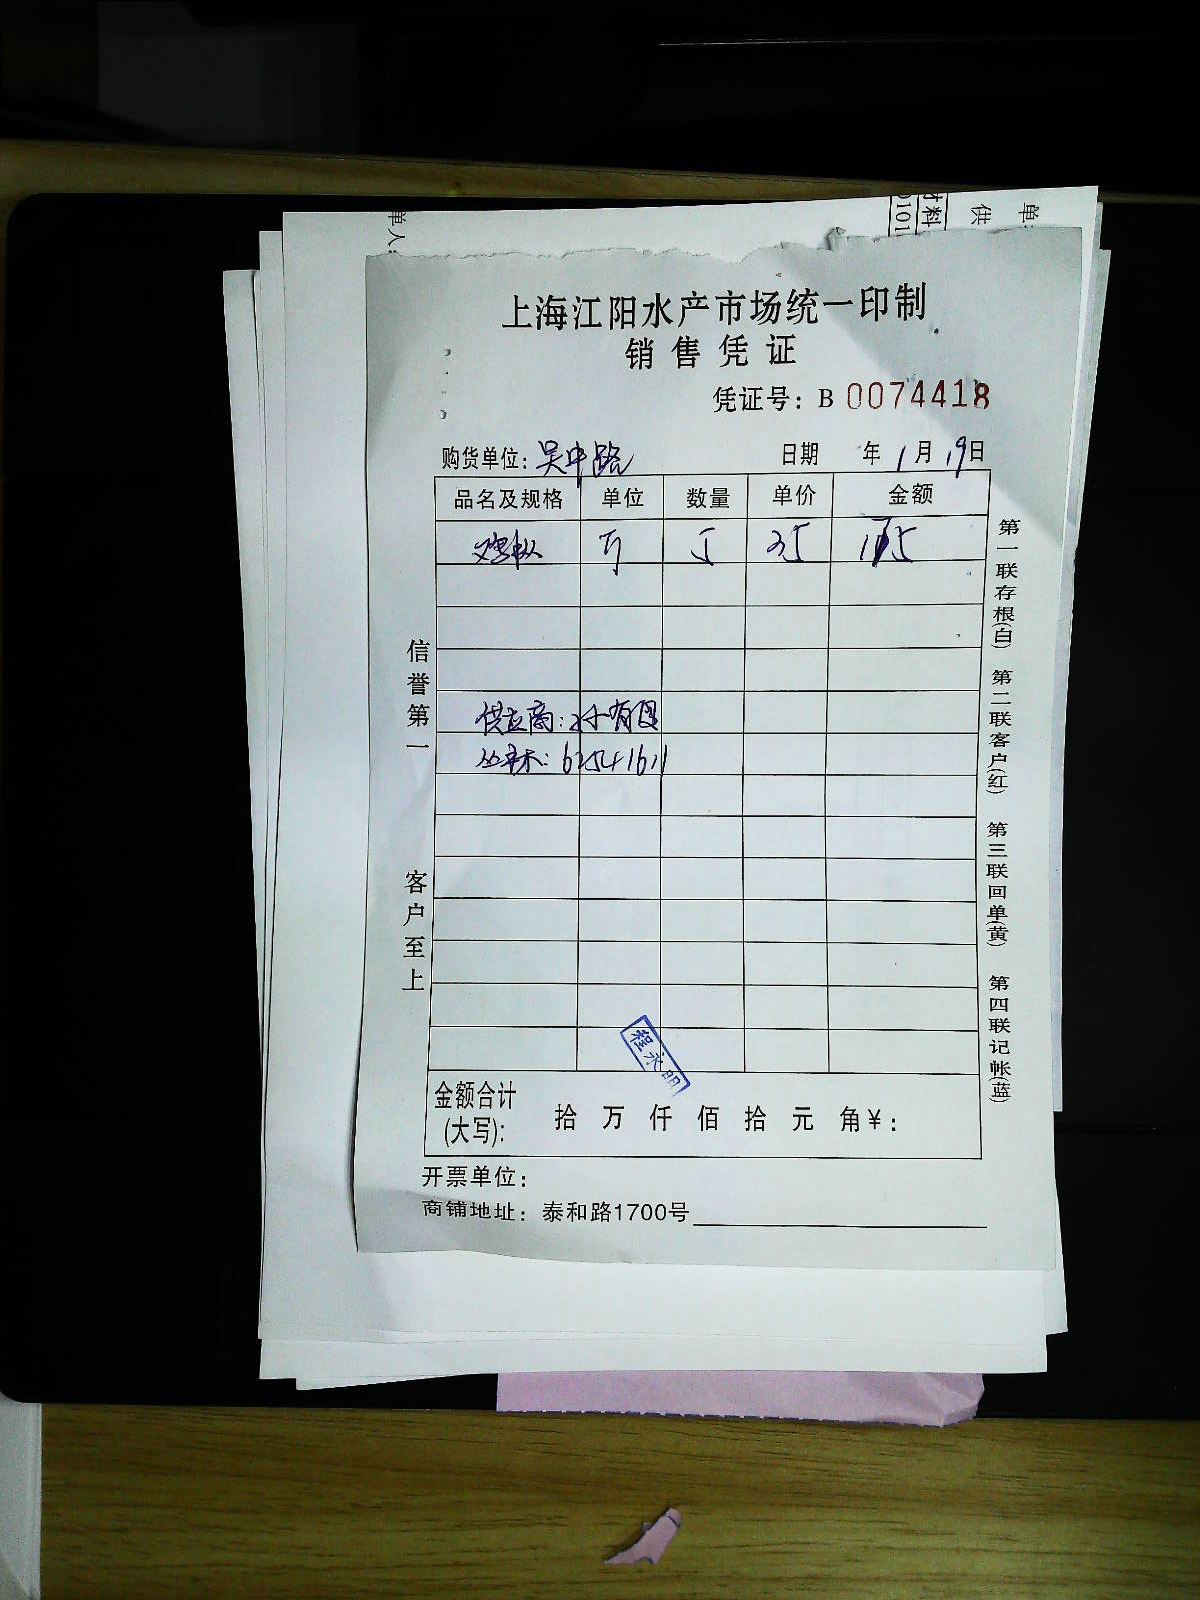 单人:
材料
0101
供
单:
上海江阳水产市场统一印制
销售凭证
凭证号: B 0074418
购货单位: 吴中路 日期 年 1 月 19 日
品名及规格 单位 数量 单价 金额
5 35
供应商: 有
: 62541611
信誉第一
客户至上
第一联存根(白) 第二联客户(红) 第三联回单(黄) 第四联记帐(蓝)
程永明
金额合计
(大写): 拾 万 仟 佰 拾 元 角 ¥:
开票单位:
商铺地址: 泰和路1700号